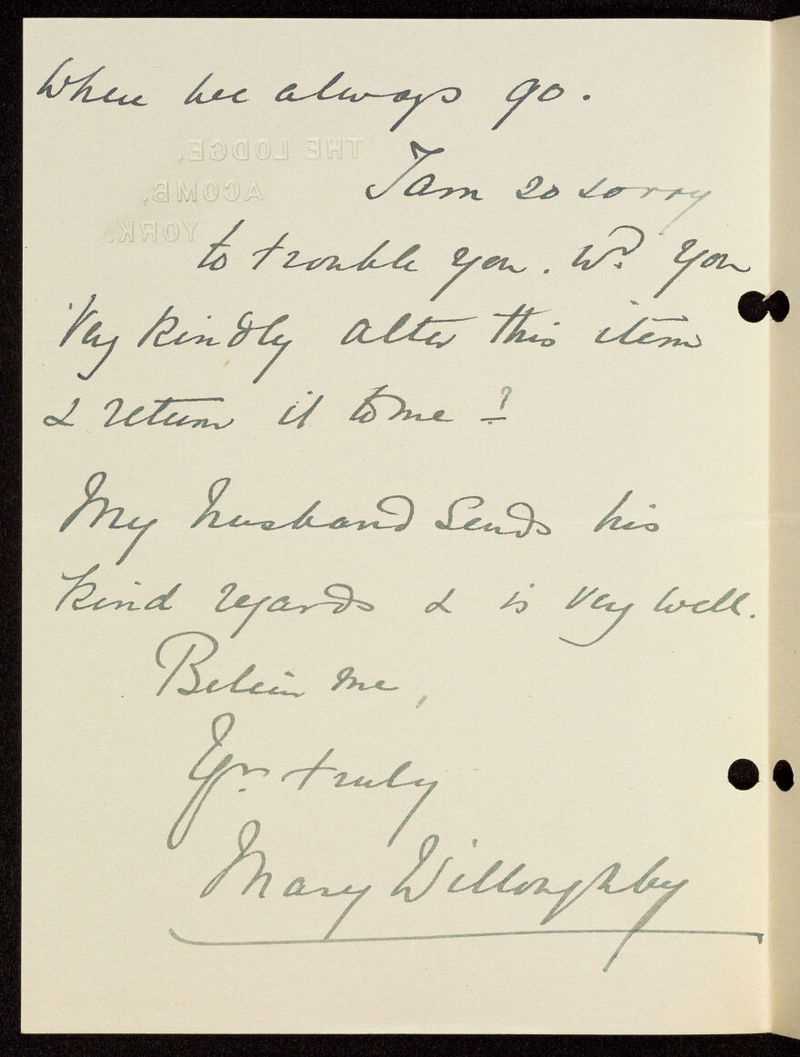 When we always go.
THE LODGE,
ACOMB,
YORK.
I am so sorry
to trouble you. Wd. you
very kindly alter this item
& return it to me?
My husband sends his
kind regards & is very well.
Believe me,
Yrs. truly
Mary Willoughby